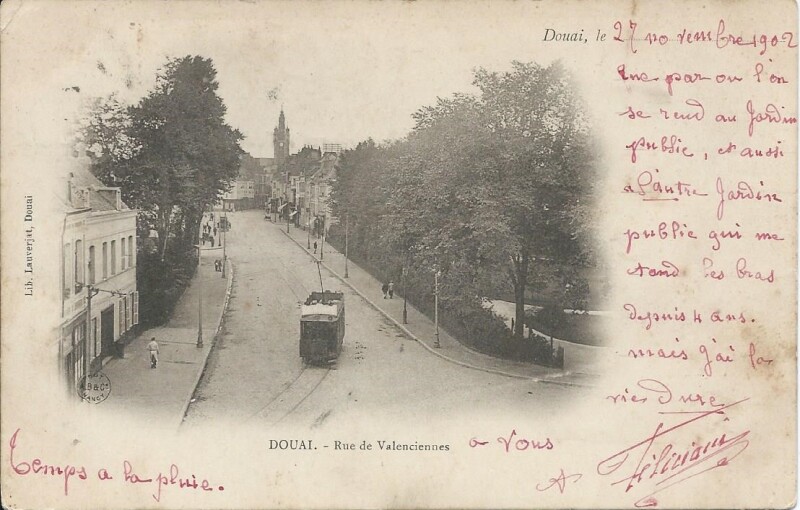 Douai, le 27 novembre 1902
Rue par ou l'on
se rend au Jardin
public, et aussi
a l'autre Jardin
public qui me
tend les bras
depuis 4 ans.
mais j'ai la
vies Dure
Lib. Lauverjat, Douai
B & Cie
NANCY
DOUAI. - Rue de Valenciennes
a Vous
Temps a la pluie.